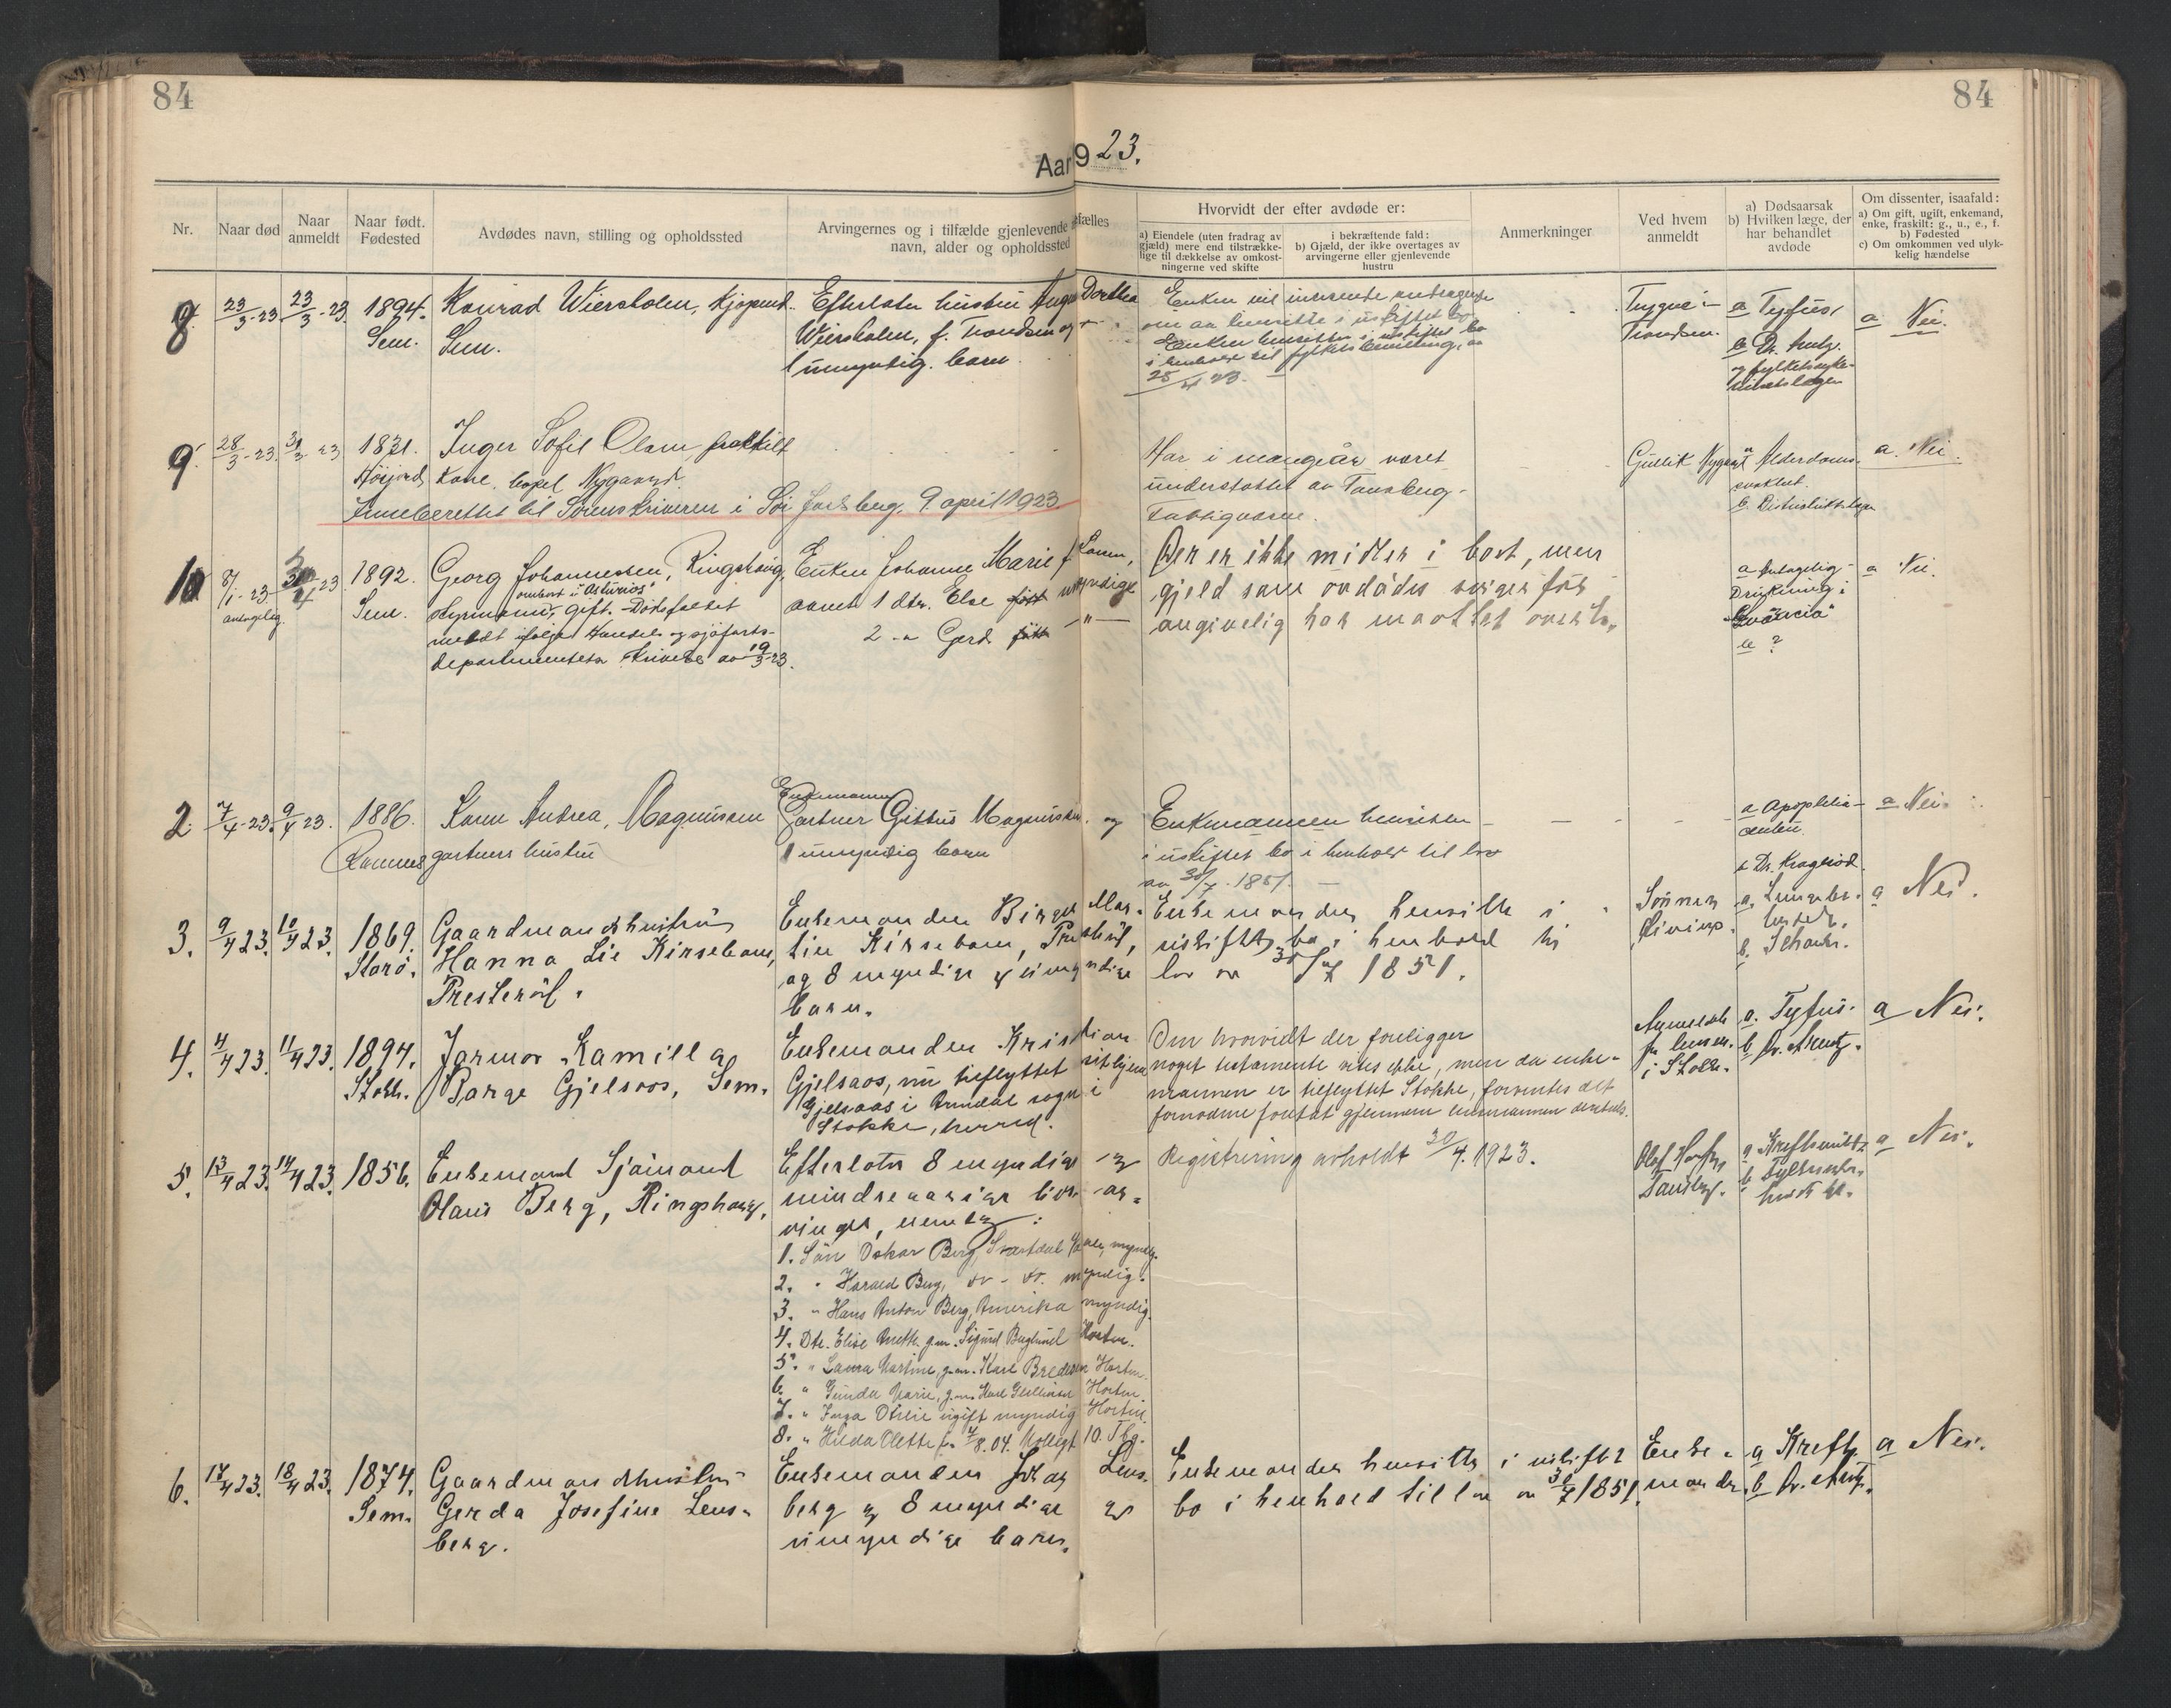 84
84
Aar 1923.
Nr.
Naar død
Naar anmeldt
Naar født. Fødested
Avdødes navn, stilling og opholdssted
Arvingernes og i tilfælde gjenlevende
navn, alder og opholdssted
Hvorvidt der efter avdøde er:
a) Eiendele (uten fradrag av
gjæld) mere end tilstrække-
lige til dækkelse av omkost-
ningerne ved skifte
i bekræftende fald:
b) Gjæld, der ikke overtages av
arvingerne eller gjenlevende
hustru
Anmerkninger
Ved hvem
anmeldt
a) Dødsaarsak
b) Hvilken læge, der
har behandlet
avdøde
Om dissenter, isaafald:
a) Om gift, ugift, enkemand,
enke, fraskilt: g., u., e., f.
b) Fødested
c) Om omkommen ved ulyk-
kelig hændelse
8. 23/3-23 23/3-23 1894. Konrad Wiersholm, kjøpmd. Efterlater hustru Dorthea
Sem. Sem. Wiersholm, f. Trondsen og
1 umyndig barn.
Enken vil innsende andragende
om aa hensitte i uskiftet bo
Enken hensitter i uskiftet bo
i henhold til fylkets bevilling av
25/4 23.
Trygve
Trondsen.
a Tyfus
b Dr. Arentz.
og fylkessyke-
huslægen
a Nei.
9. 28/3-23. 31/3 23 1831. Inger Sofie Olsen, fraskilt
Høijord kone, bopel Nygaard
Innberettet til Sorenskriveren i Sør Jarlsberg, 9 april 1923
Har i mange år været
understøttet av Tønsberg
Fattigvæsen.
Gullik Nygaard
a Alderdoms-
svakhet.
b Distriktslægen
a. Nei.
10 8/1-23 23 1892. Georg Johannessen, Ringshaug, Enken Johanne Marie f. Larsen,
antagelig. Sem. ombord i "Asturias"
styrmann, gift. Dødsfaldet
meldt ifølge Handels og sjøfarts-
departementets skrivelse av 19/3-23.
1 dtr. Else født umyndige
2 -" Gerd født -"-
Der er ikke midler i boet, men
gjeld som avdødes svigerfar
angivelig har maattet overta.
a Antagelig
Drukning i
b ?
a Nei.
2. 7/4-23. 9/4 23. 1886. Karen Andrea, Magnussen
Ramnes gartners hustru
Enkemannen
Gartner Gittus Magnussen, og
1 umyndig barn
Enkemannen hensitter
i uskiftet bo i henhold til lov
av 30/7-1851.
a Apopleksia
b Dr. Kragerød
a Nei.
3. 9/4 23. 10/4 23. 1869. Gaardmandshustru
Storø. Hanna Lie Kirsebom,
Presterød.
Enkemanden Birger Mar-
tin Kirsebom, Presterød,
og 8 myndige og umyndige
barn.
Enkemanden hensitter i
uskiftet bo i henhold til
lov av 30/7 1851.
Sønnen
a. Lungebe-
tendelse.
b. Scharn.
a Nei.
4. 4/4 23. 11/4 23. 1894. Jarmor Kamilla
Stokke. Barge Gjelsaos, Sem.
Enkemanden Kristian
Gjelsaos, nu tilflyttet sit hjem
Gjelsaas i Arendal sogn i
Stokke, herred.
Om hvorvidt der foreligger
noget testamente vites ikke, men da enke-
mannen er tilflyttet Stokke, forventes det
fornødne foretat gjennem lensmannen dersteds.
Anmeldt
fr. lensm.
i Stokke.
a. Tyfus.
b Dr. Arentz.
a Nei.
5. 13/4 23. 14/4 23. 1856. Enkemand Sjømand
Olaus Berg, Ringshaug.
Efterlater 8 myndige og
mindreaarige livsar-
vinger, nemlig:
1. Søn Oskar Berg, Svartdal, myndig.
2. " Harald Berg, do - do. myndig.
3. " Hans Anton Berg, Amerika myndig.
4. Dtr. Elise Aneth. g.m. Sigurd Berglund Horten.
5. " Laura Martine, g.m. Karl Bredesen Horten.
6. " Gunda Marie, g.m. Karl Horten.
7. " Inga Otilie ugift myndig Horten.
8. " Hilda Olette f. 7/8.04. 10. Tbg.
Registrering avholdt 30/4. 1923.
Olaf
Tønsberg.
a Kreft
b Fylkessyke-
huset.
a Nei.
6. 17/4 23. 18/4 23. 1874. Gaardmandshustru
Sem. Gerda Josefine Lens-
berg.
Enkemanden Lens-
berg og 8 myndige og
umyndige barn.
Enkemanden hensitter i uskiftet
bo i henhold til lov av 30/7 1851.
Enke-
manden.
a Kreft.
b Dr. Arentz.
a Nei.